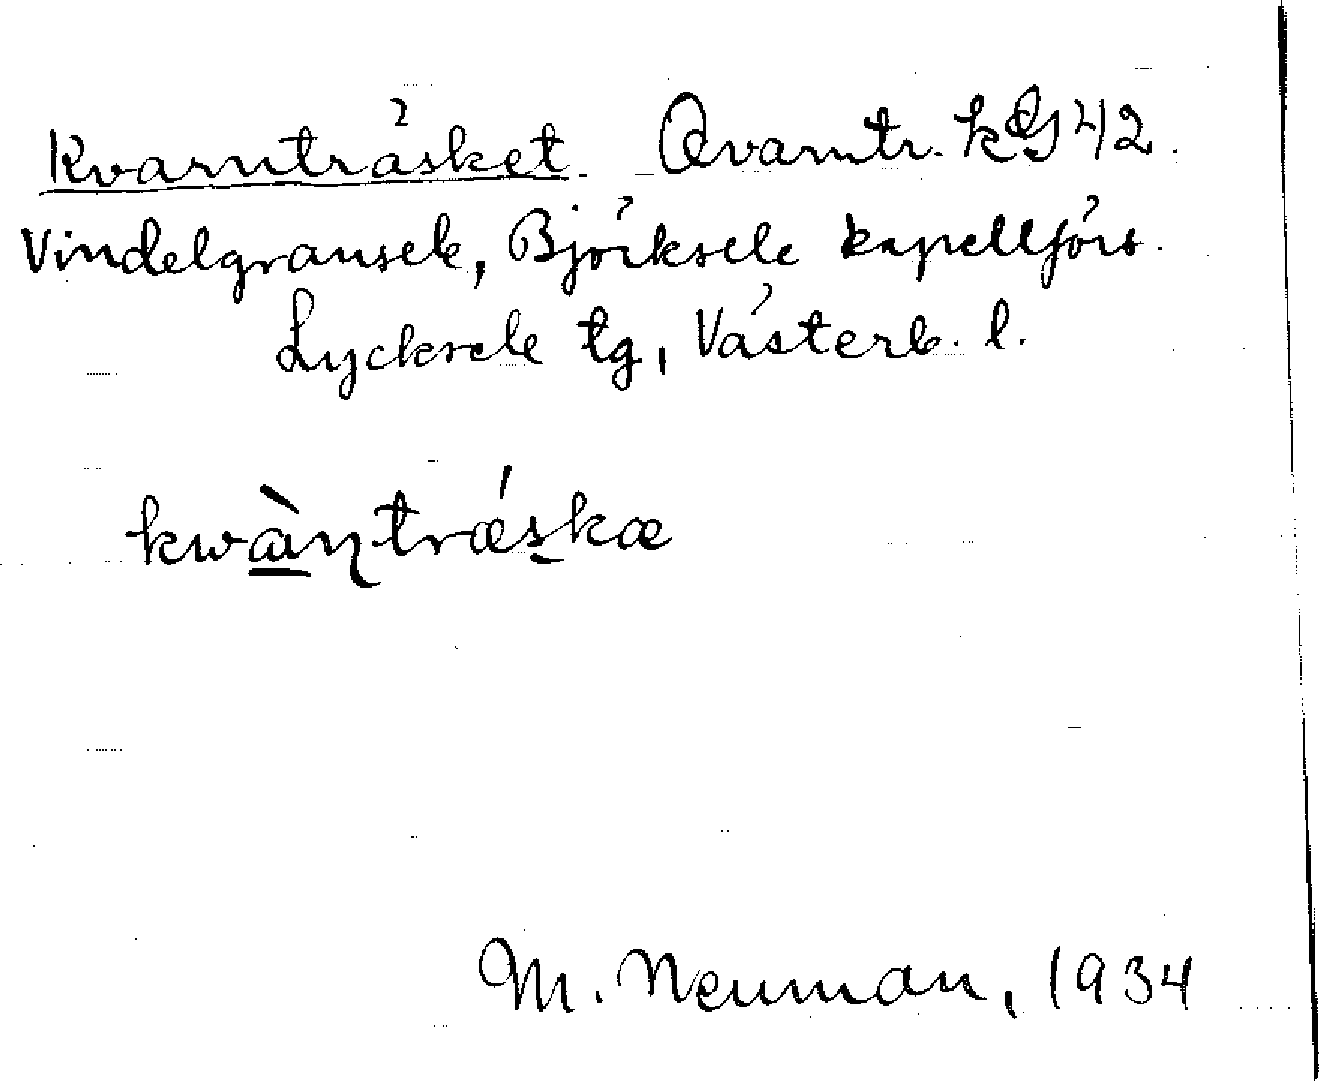 Kvarnträsket. Qvarntr. kG 42.
Vindelgransele, Björksele kapellförs.
Lycksele tg, Västerb. l.
kwàṇtrǽs̱kæ
M. Neuman, 1934